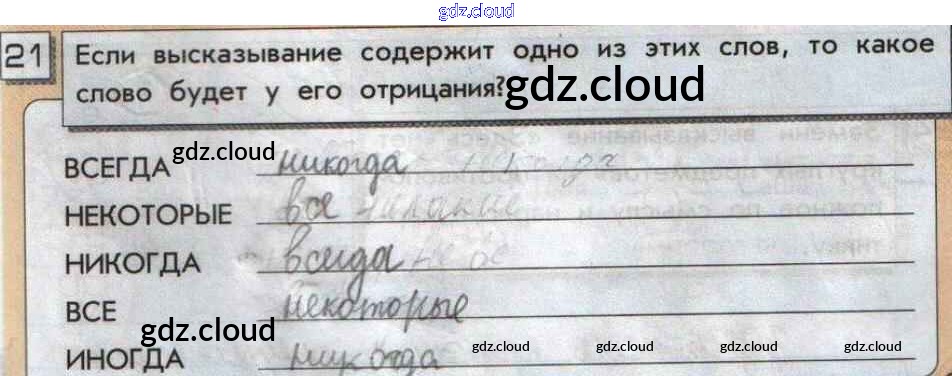 gdz.cloud
21 Если высказывание содержит одно из этих слов, то какое
слово будет у его отрицания? gdz.cloud
ВСЕГДА gdz.cloud никогда
НЕКОТОРЫЕ все
НИКОГДА всегда
ВСЕ некоторые
gdz.cloud
ИНОГДА никогда gdz.cloud gdz.cloud gdz.cloud gdz.cloud